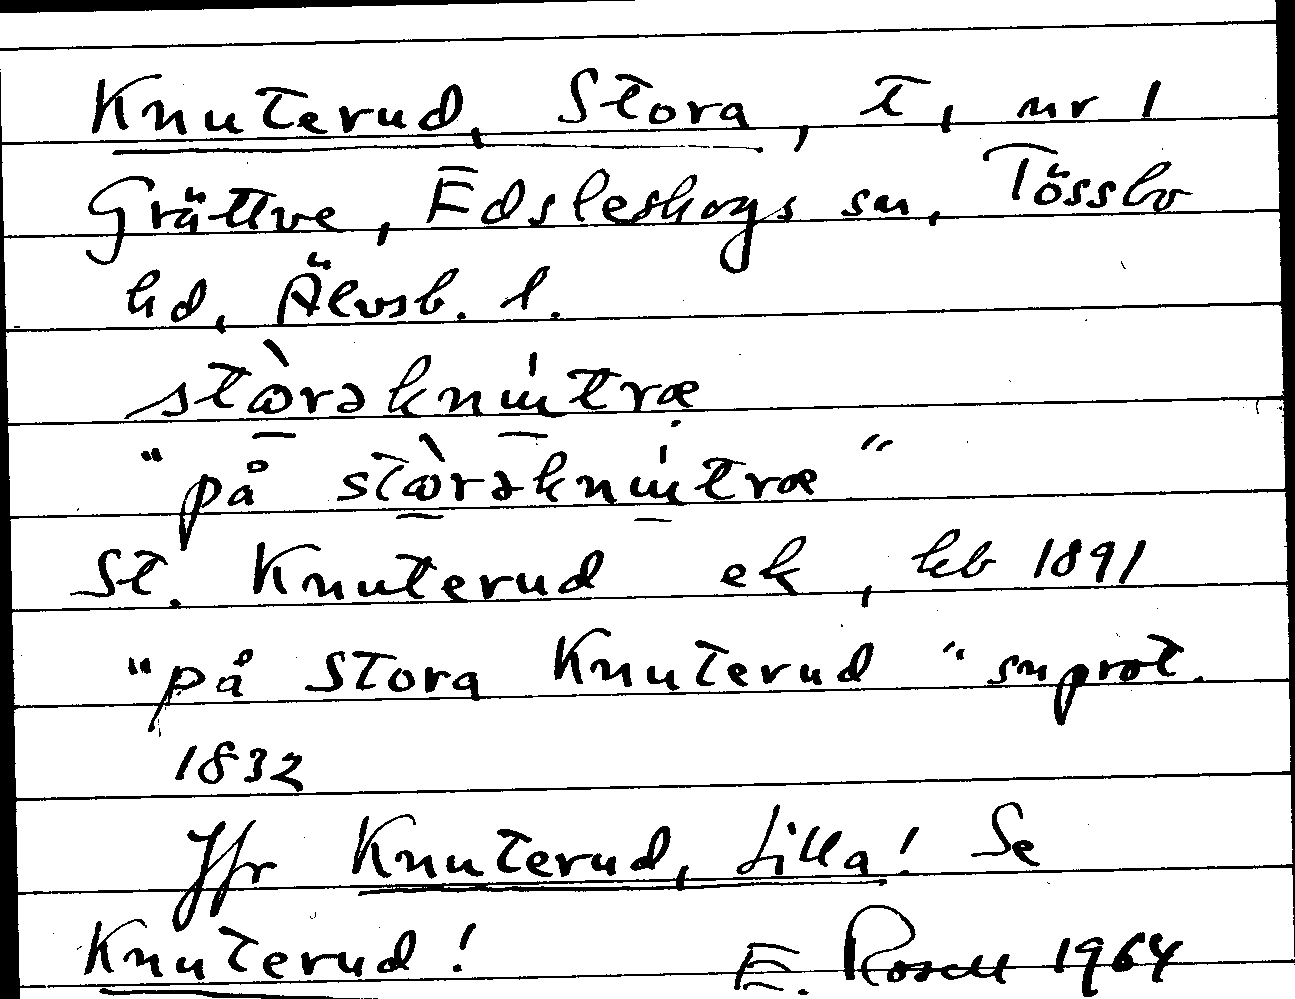 Knuterud, Stora, t, nr 1
Grättve, Edsleskogs sn, Tössbo
hd, Älvsb. l.
"på
St. Knuterud ek, kb 1891
"på Stora Knuterud" snprot.
1832
Jfr Knuterud, Lilla! Se
Knuterud! E. Rosell 1964